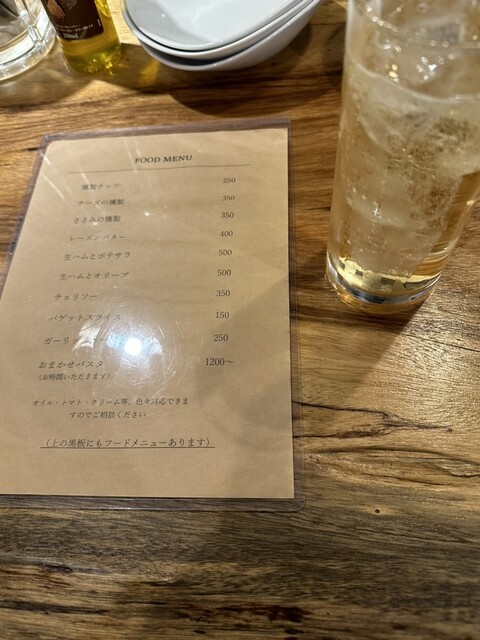 250ml
FOOD MENU
燻製ナッツ 250
チーズの燻製 350
ささみの燻製 350
レーズンバター 400
生ハムとポテサラ 500
生ハムとオリーブ 500
チョリソー 350
バゲットスライス 150
ガーリッ 250
おまかせパスタ 1200〜
(お時間いただきます)
オイル・トマト・クリーム等、色々対応できま
すのでご相談ください
(上の黒板にもフードメニューあります)